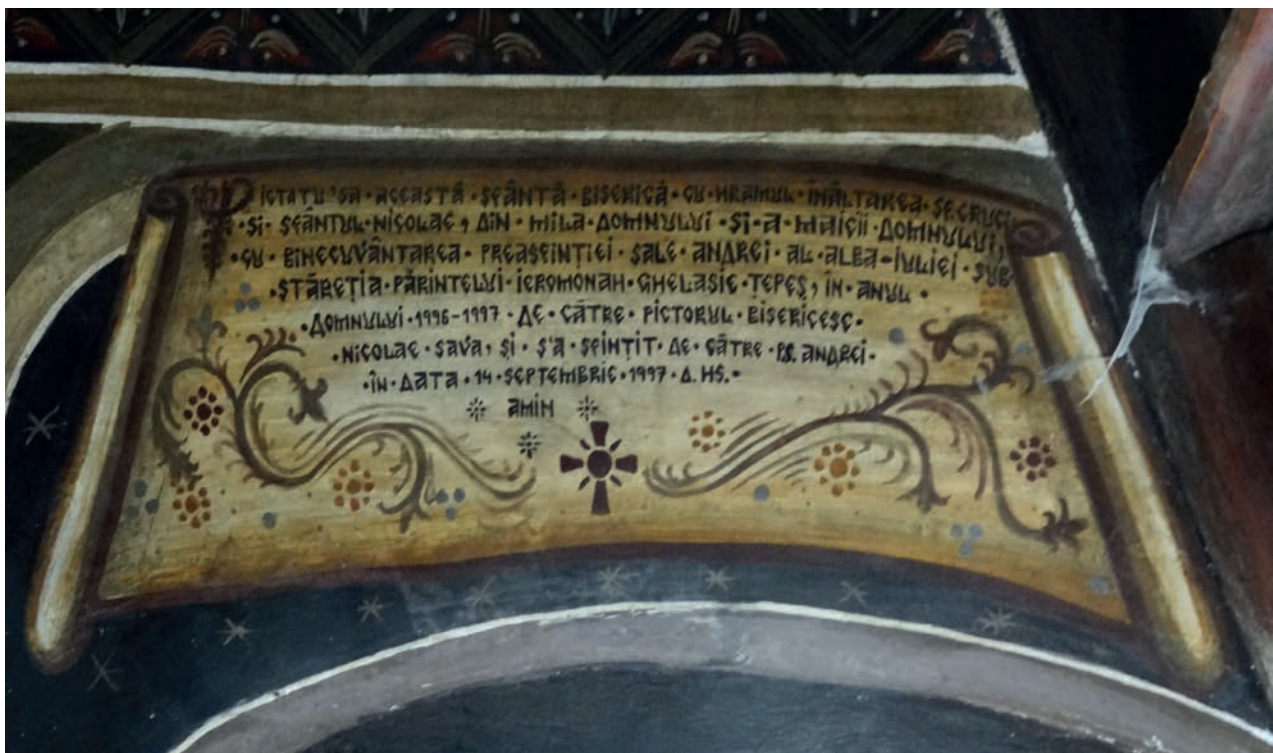 Pictatu'sa·această·sfântă·biserică·cu·hramul·înălțarea·sf.crucii
·și·sfântul·nicolae, din·mila·domnului·și·a·maicii·domnului,
·cu·binecuvântarea·preasfinției·sale·andrei·al·alba-iuliei·sub·
·stăreția·părintelui·ieromonah·ghelasie·țepeș, în·anul·
·domnului·1996-1997·de·către·pictorul·bisericesc·
·nicolae·sava, și·s'a·sfințit·de·către·p.s.andrei·
·în·data·14·septembrie·1997·d.hs.·
amin